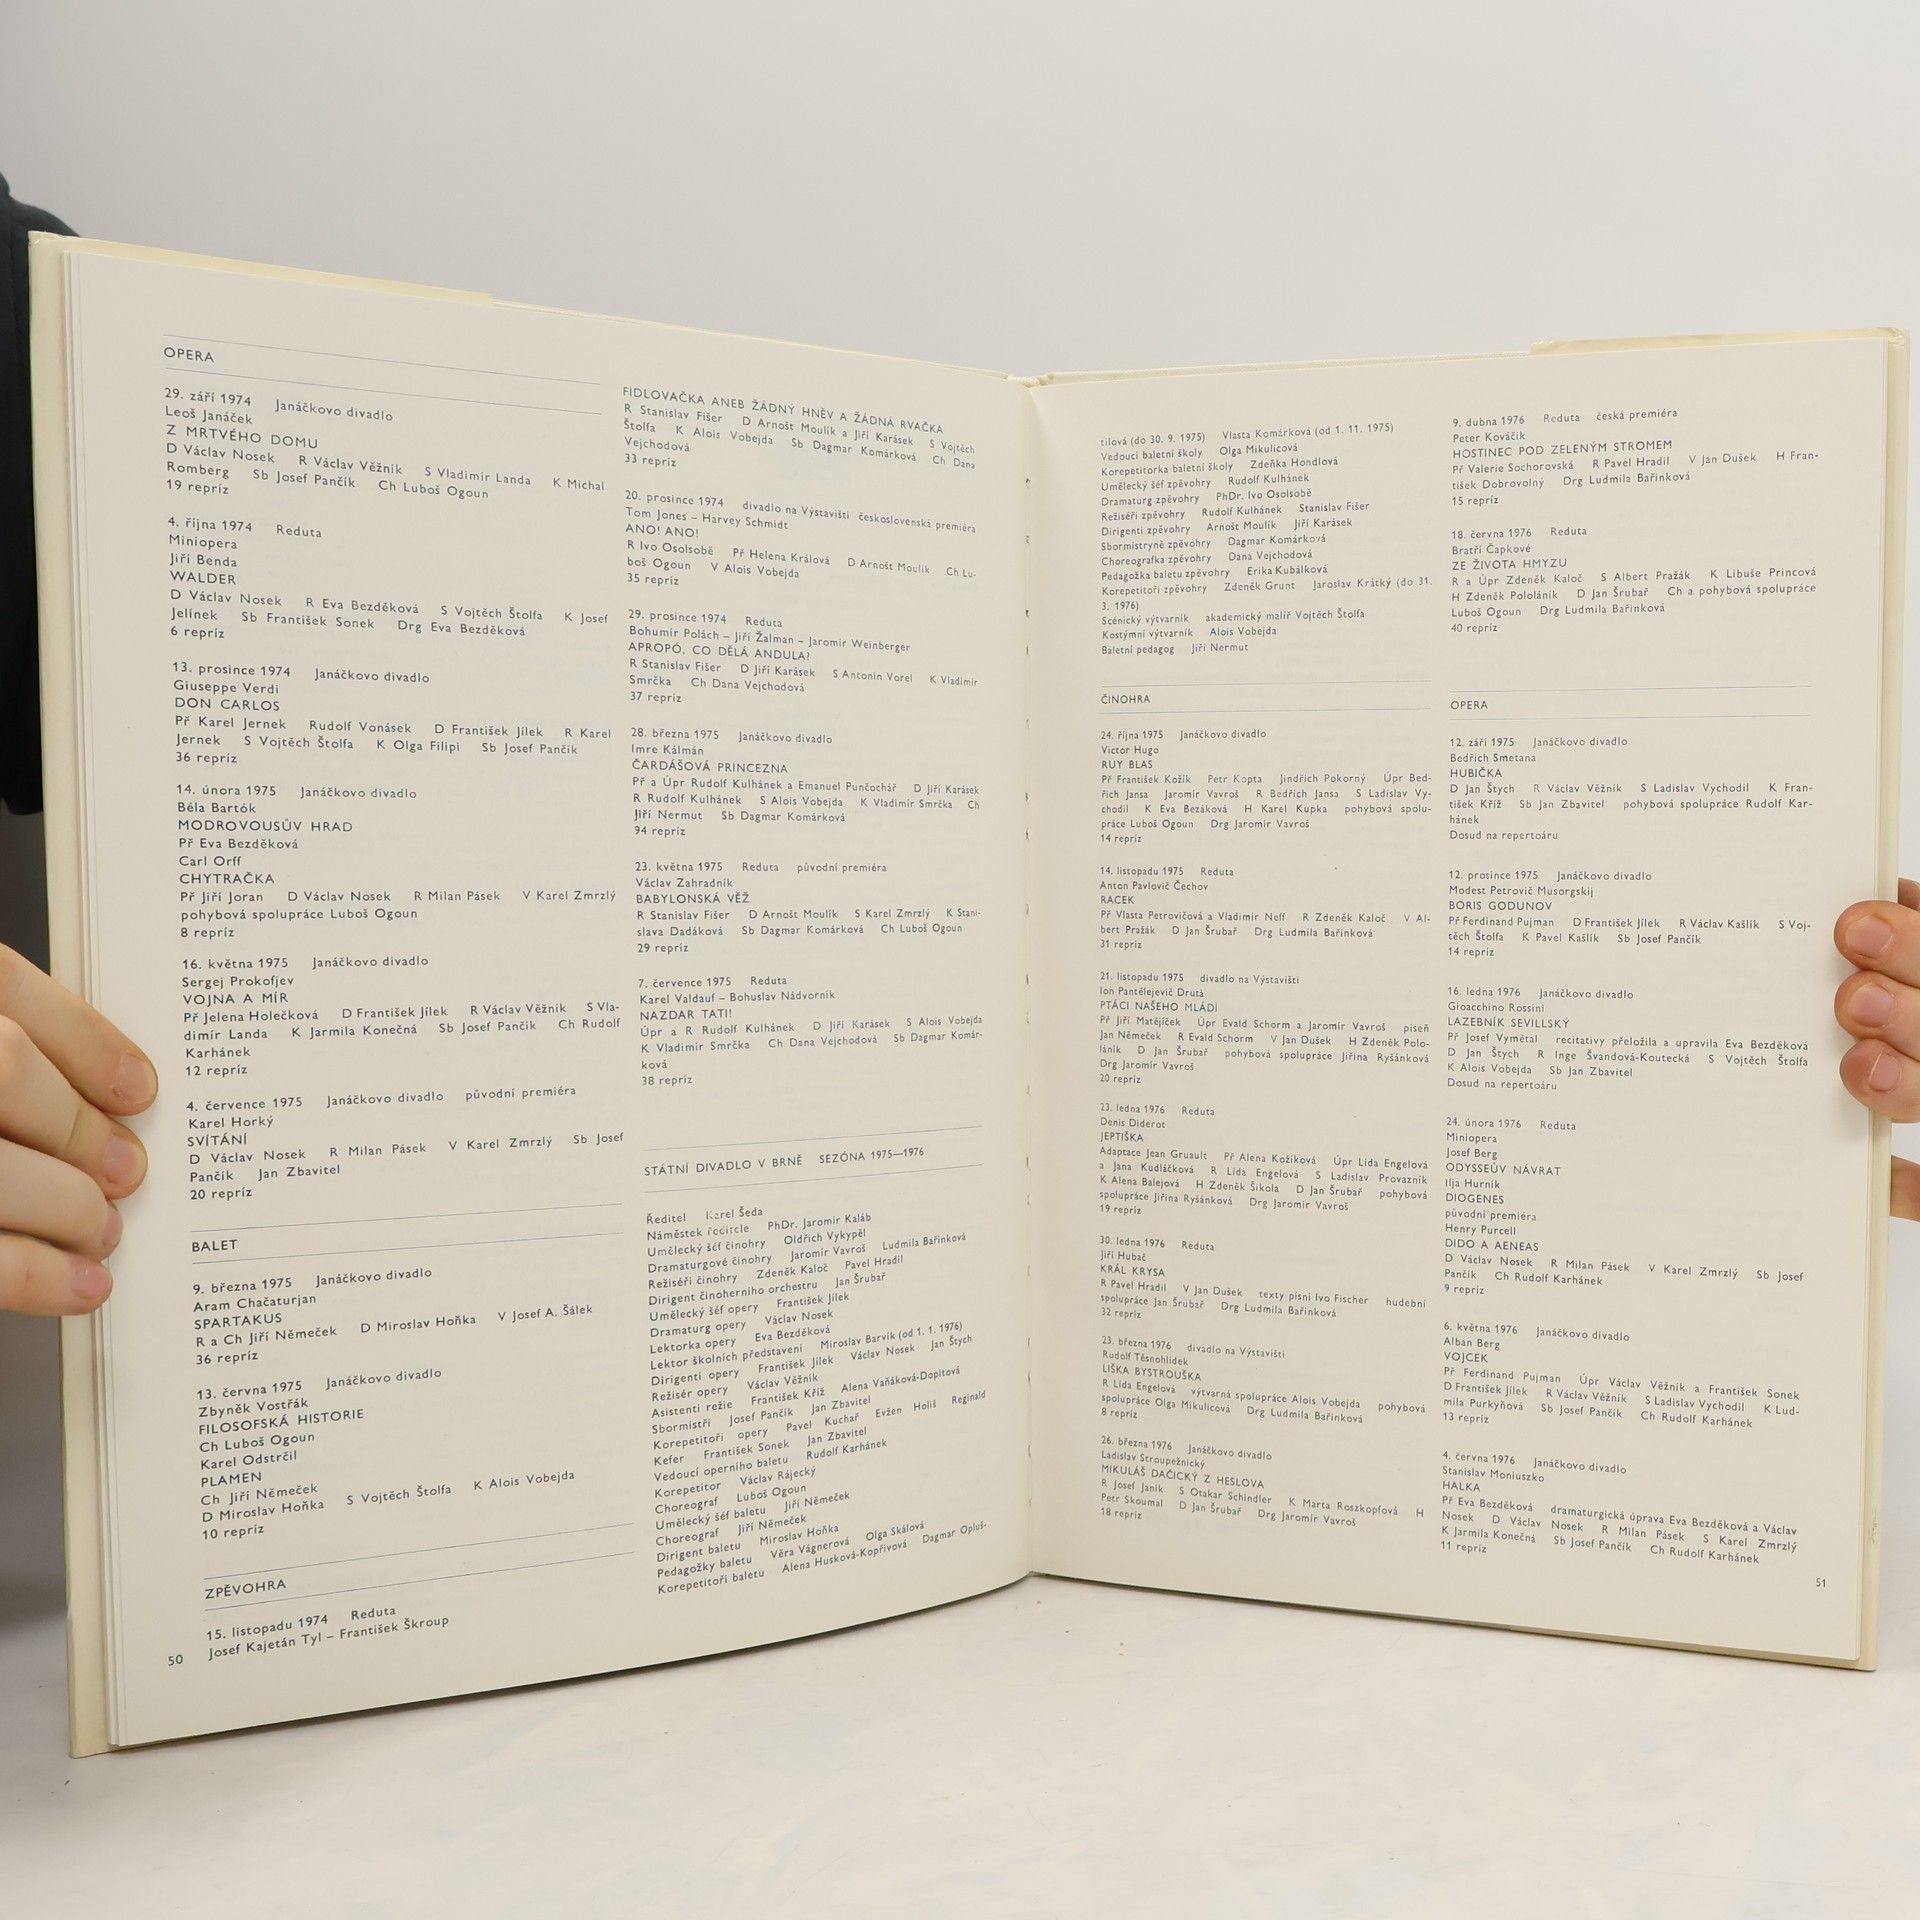 OPERA
29. září 1974 Janáčkovo divadlo
Leoš Janáček
Z MRTVÉHO DOMU
D Václav Nosek R Václav Věžník S Vladimír Landa K Michal
Romberg Sb Josef Pančík Ch Luboš Ogoun
19 repríz
4. října 1974 Reduta
Miniopera
Jiří Benda
WALDER
D Václav Nosek R Eva Bezděková S Vojtěch Štolfa K Josef
Jelínek Sb František Sonek Drg Eva Bezděková
6 repríz
13. prosince 1974 Janáčkovo divadlo
Giuseppe Verdi
DON CARLOS
Př Karel Jernek Rudolf Vonásek D František Jílek R Karel
Jernek S Vojtěch Štolfa K Olga Filipi Sb Josef Pančík
36 repríz
14. února 1975 Janáčkovo divadlo
Béla Bartók
MODROVOUSŮV HRAD
Př Eva Bezděková
Carl Orff
CHYTRAČKA
Př Jiří Joran D Václav Nosek R Milan Pásek V Karel Zmrzlý
pohybová spolupráce Luboš Ogoun
8 repríz
16. května 1975 Janáčkovo divadlo
Sergej Prokofjev
VOJNA A MÍR
Př Jelena Holečková D František Jílek R Václav Věžník S Vla-
dimír Landa K Jarmila Konečná Sb Josef Pančík Ch Rudolf
Karhánek
12 repríz
4. července 1975 Janáčkovo divadlo původní premiéra
Karel Horký
SVÍTÁNÍ
D Václav Nosek R Milan Pásek V Karel Zmrzlý Sb Josef
Pančík Jan Zbavitel
20 repríz
BALET
9. března 1975 Janáčkovo divadlo
Aram Chačaturjan
SPARTAKUS
R a Ch Jiří Němeček D Miroslav Hoňka V Josef A. Šálek
36 repríz
13. června 1975 Janáčkovo divadlo
Zbyněk Vostřák
FILOSOFSKÁ HISTORIE
Ch Luboš Ogoun
Karel Odstrčil
PLAMEN
Ch Jiří Němeček
D Miroslav Hoňka S Vojtěch Štolfa K Alois Vobejda
10 repríz
ZPĚVOHRA
15. listopadu 1974 Reduta
Josef Kajetán Tyl – František Škroup
50
FIDLOVAČKA ANEB ŽÁDNÝ HNĚV A ŽÁDNÁ RVAČKA
R Stanislav Fišer D Arnošt Moulík a Jiří Karásek S Vojtěch
Štolfa K Alois Vobejda Sb Dagmar Komárková Ch Dana
Vejchodová
33 repríz
20. prosince 1974 divadlo na Výstavišti československá premiéra
Tom Jones – Harvey Schmidt
ANO! ANO!
R Ivo Osolsobě Př Helena Králová D Arnošt Moulík Ch Lu-
boš Ogoun V Alois Vobejda
35 repríz
29. prosince 1974 Reduta
Bohumír Polách – Jiří Žalman – Jaromír Weinberger
APROPÓ, CO DĚLÁ ANDULA?
R Stanislav Fišer D Jiří Karásek S Antonín Vorel K Vladimír
Smrčka Ch Dana Vejchodová
37 repríz
28. března 1975 Janáčkovo divadlo
Imre Kálmán
ČARDÁŠOVÁ PRINCEZNA
Př a Úpr Rudolf Kulhánek a Emanuel Punčochář D Jiří Karásek
R Rudolf Kulhánek S Alois Vobejda K Vladimír Smrčka Ch
Jiří Nermut Sb Dagmar Komárková
94 repríz
23. května 1975 Reduta původní premiéra
Václav Zahradník
BABYLONSKÁ VĚŽ
R Stanislav Fišer D Arnošt Moulík S Karel Zmrzlý K Stani-
slava Dadáková Sb Dagmar Komárková Ch Luboš Ogoun
29 repríz
7. července 1975 Reduta
Karel Valdauf – Bohuslav Nádvorník
NAZDAR TATI!
Úpr a R Rudolf Kulhánek D Jiří Karásek S Alois Vobejda
K Vladimír Smrčka Ch Dana Vejchodová Sb Dagmar Komár-
ková
38 repríz
STÁTNÍ DIVADLO V BRNĚ SEZÓNA 1975—1976
Ředitel Karel Šeda
Náměstek ředitele PhDr. Jaromír Kaláb
Umělecký šéf činohry Oldřich Vykypěl
Dramaturgové činohry Jaromír Vavroš Ludmila Bařinková
Režiséři činohry Zdeněk Kaloč Pavel Hradil
Dirigent činoherního orchestru Jan Šrubař
Umělecký šéf opery František Jílek
Dramaturg opery Václav Nosek
Lektorka opery Eva Bezděková
Lektor školních představení Miroslav Barvík (od 1. 1. 1976)
Dirigenti opery František Jílek Václav Nosek Jan Štych
Režisér opery Václav Věžník
Asistenti režie František Kříž Alena Vaňáková-Dopitová
Sbormistři Josef Pančík Jan Zbavitel
Korepetitoři opery Pavel Kuchař Evžen Holiš Reginald
Kefer František Sonek Jan Zbavitel
Vedoucí operního baletu Rudolf Karhánek
Korepetitor Václav Rájecký
Choreograf Luboš Ogoun
Umělecký šéf baletu Jiří Němeček
Choreograf Jiří Němeček
Dirigent baletu Miroslav Hoňka
Pedagožky baletu Věra Vágnerová Olga Skálová
Korepetitoři baletu Alena Husková-Kopřivová Dagmar Opluš-
tilová (do 30. 9. 1975) Vlasta Komárková (od 1. 11. 1975)
Vedoucí baletní školy Olga Mikulicová
Korepetitorka baletní školy Zdeňka Hondlová
Umělecký šéf zpěvohry Rudolf Kulhánek
Dramaturg zpěvohry PhDr. Ivo Osolsobě
Režiséři zpěvohry Rudolf Kulhánek Stanislav Fišer
Dirigenti zpěvohry Arnošt Moulík Jiří Karásek
Sbormistryně zpěvohry Dagmar Komárková
Choreografka zpěvohry Dana Vejchodová
Pedagožka baletu zpěvohry Erika Kubálková
Korepetitoři zpěvohry Zdeněk Grunt Jaroslav Krátký (do 31.
3. 1976)
Scénický výtvarník akademický malíř Vojtěch Štolfa
Kostýmní výtvarník Alois Vobejda
Baletní pedagog Jiří Nermut
ČINOHRA
24. října 1975 Janáčkovo divadlo
Victor Hugo
RUY BLAS
Př František Kožík Petr Kopta Jindřich Pokorný Úpr Bed-
řich Jansa Jaromír Vavroš R Bedřich Jansa S Ladislav Vy-
chodil K Eva Bezáková H Karel Kupka pohybová spolu-
práce Luboš Ogoun Drg Jaromír Vavroš
14 repríz
14. listopadu 1975 Reduta
Anton Pavlovič Čechov
RACEK
Př Vlasta Petrovičová a Vladimír Neff R Zdeněk Kaloč V Al-
bert Pražák D Jan Šrubař Drg Ludmila Bařinková
31 repríz
21. listopadu 1975 divadlo na Výstavišti
Ion Pantělejevič Drutá
PTÁCI NAŠEHO MLÁDÍ
Př Jiří Matějíček Úpr Evald Schorm a Jaromír Vavroš píseň
Jan Němeček R Evald Schorm V Jan Dušek H Zdeněk Polo-
láník D Jan Šrubař pohybová spolupráce Jiřina Ryšánková
Drg Jaromír Vavroš
20 repríz
23. ledna 1976 Reduta
Denis Diderot
JEPTIŠKA
Adaptace Jean Gruault Př Alena Kožíková Úpr Lída Engelová
a Jana Kudláčková R Lída Engelová S Ladislav Provazník
K Alena Balejová H Zdeněk Šikola D Jan Šrubař pohybová
spolupráce Jiřina Ryšánková Drg Jaromír Vavroš
19 repríz
30. ledna 1976 Reduta
Jiří Hubač
KRÁL KRYSA
R Pavel Hradil V Jan Dušek texty písní Ivo Fischer hudební
spolupráce Jan Šrubař Drg Ludmila Bařinková
32 repríz
23. března 1976 divadlo na Výstavišti
Rudolf Těsnohlídek
LIŠKA BYSTROUŠKA
R Lída Engelová výtvarná spolupráce Alois Vobejda pohybová
spolupráce Olga Mikulicová Drg Ludmila Bařinková
8 repríz
26. března 1976 Janáčkovo divadlo
Ladislav Stroupežnický
MIKULÁŠ DAČICKÝ Z HESLOVA
R Josef Janík S Otakar Schindler K Marta Roszkopfová H
Petr Skoumal D Jan Šrubař Drg Jaromír Vavroš
18 repríz
9. dubna 1976 Reduta česká premiéra
Peter Kováčik
HOSTINEC POD ZELENÝM STROMEM
Př Valerie Sochorovská R Pavel Hradil V Jan Dušek H Fran-
tišek Dobrovolný Drg Ludmila Bařinková
15 repríz
18. června 1976 Reduta
Bratři Čapkové
ZE ŽIVOTA HMYZU
R a Úpr Zdeněk Kaloč S Albert Pražák K Libuše Princová
H Zdeněk Pololáník D Jan Šrubař Ch a pohybová spolupráce
Luboš Ogoun Drg Ludmila Bařinková
40 repríz
OPERA
12. září 1975 Janáčkovo divadlo
Bedřich Smetana
HUBIČKA
D Jan Štych R Václav Věžník S Ladislav Vychodil K Fran-
tišek Kříž Sb Jan Zbavitel pohybová spolupráce Rudolf Kar-
hánek
Dosud na repertoáru
12. prosince 1975 Janáčkovo divadlo
Modest Petrovič Musorgskij
BORIS GODUNOV
Př Ferdinand Pujman D František Jílek R Václav Kašlík S Voj-
těch Štolfa K Pavel Kašlík Sb Josef Pančík
14 repríz
16. ledna 1976 Janáčkovo divadlo
Gioacchino Rossini
LAZEBNÍK SEVILLSKÝ
Př Josef Vymětal recitativy přeložila a upravila Eva Bezděková
D Jan Štych R Inge Švandová-Koutecká S Vojtěch Štolfa
K Alois Vobejda Sb Jan Zbavitel
Dosud na repertoáru
24. února 1976 Reduta
Miniopera
Josef Berg
ODYSSEŮV NÁVRAT
Ilja Hurník
DIOGENES
původní premiéra
Henry Purcell
DIDO A AENEAS
D Václav Nosek R Milan Pásek V Karel Zmrzlý Sb Josef
Pančík Ch Rudolf Karhánek
9 repríz
6. května 1976 Janáčkovo divadlo
Alban Berg
VOJCEK
Př Ferdinand Pujman Úpr Václav Věžník a František Sonek
D František Jílek R Václav Věžník S Ladislav Vychodil K Lud-
mila Purkyňová Sb Josef Pančík Ch Rudolf Karhánek
13 repríz
4. června 1976 Janáčkovo divadlo
Stanislav Moniuszko
HALKA
Př Eva Bezděková dramaturgická úprava Eva Bezděková a Václav
Nosek D Václav Nosek R Milan Pásek S Karel Zmrzlý
K Jarmila Konečná Sb Josef Pančík Ch Rudolf Karhánek
11 repríz
51